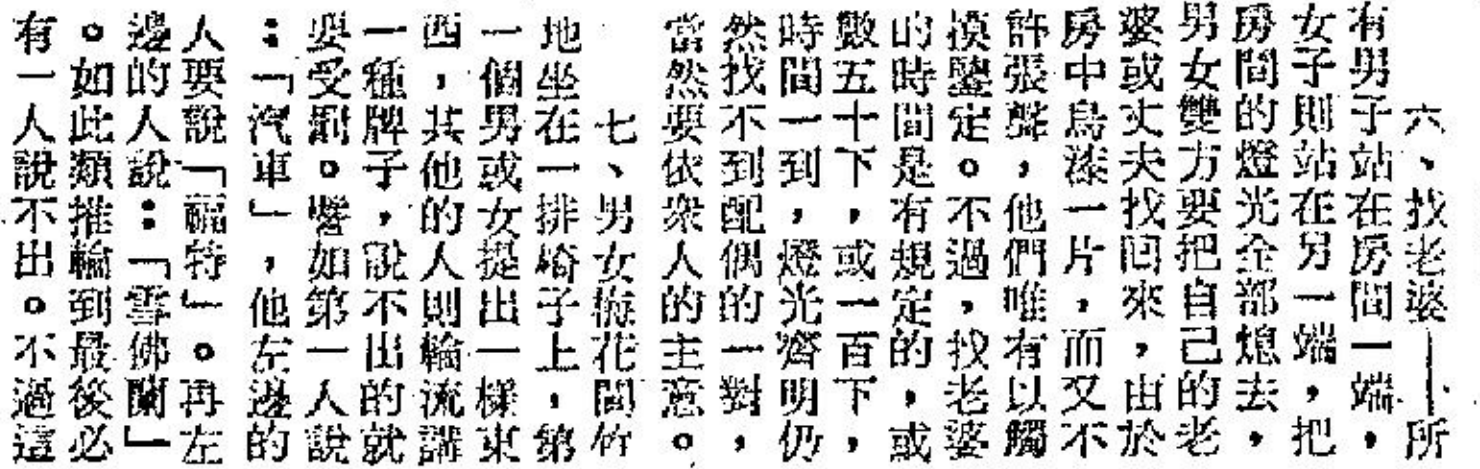 六、找老婆——所
有男子站在房間一端，
女子則站在另一端，把
房間的燈光全部熄去，
男女雙方要把自己的老
婆或丈夫找回來，由於
房中烏漆一片，而又不
許張聲，他們唯有以觸
摸鑒定。不過，找老婆
的時間是有規定的，或
數五十下，或一百下，
時間一到，燈光齊明仍
然找不到配偶的一對，
當然要依衆人的主意。
七、男女梅花間竹
地坐在一排椅子上，第
一個男或女提出一樣東
西，其他的人則輪流講
一種牌子，說不出的就
要受罰。譬如第一人說
：「汽車」，他左邊的
人要說「福特」。再左
邊的人說：「雪佛蘭」
。如此類推輪到最後必
有一人說不出。不過這